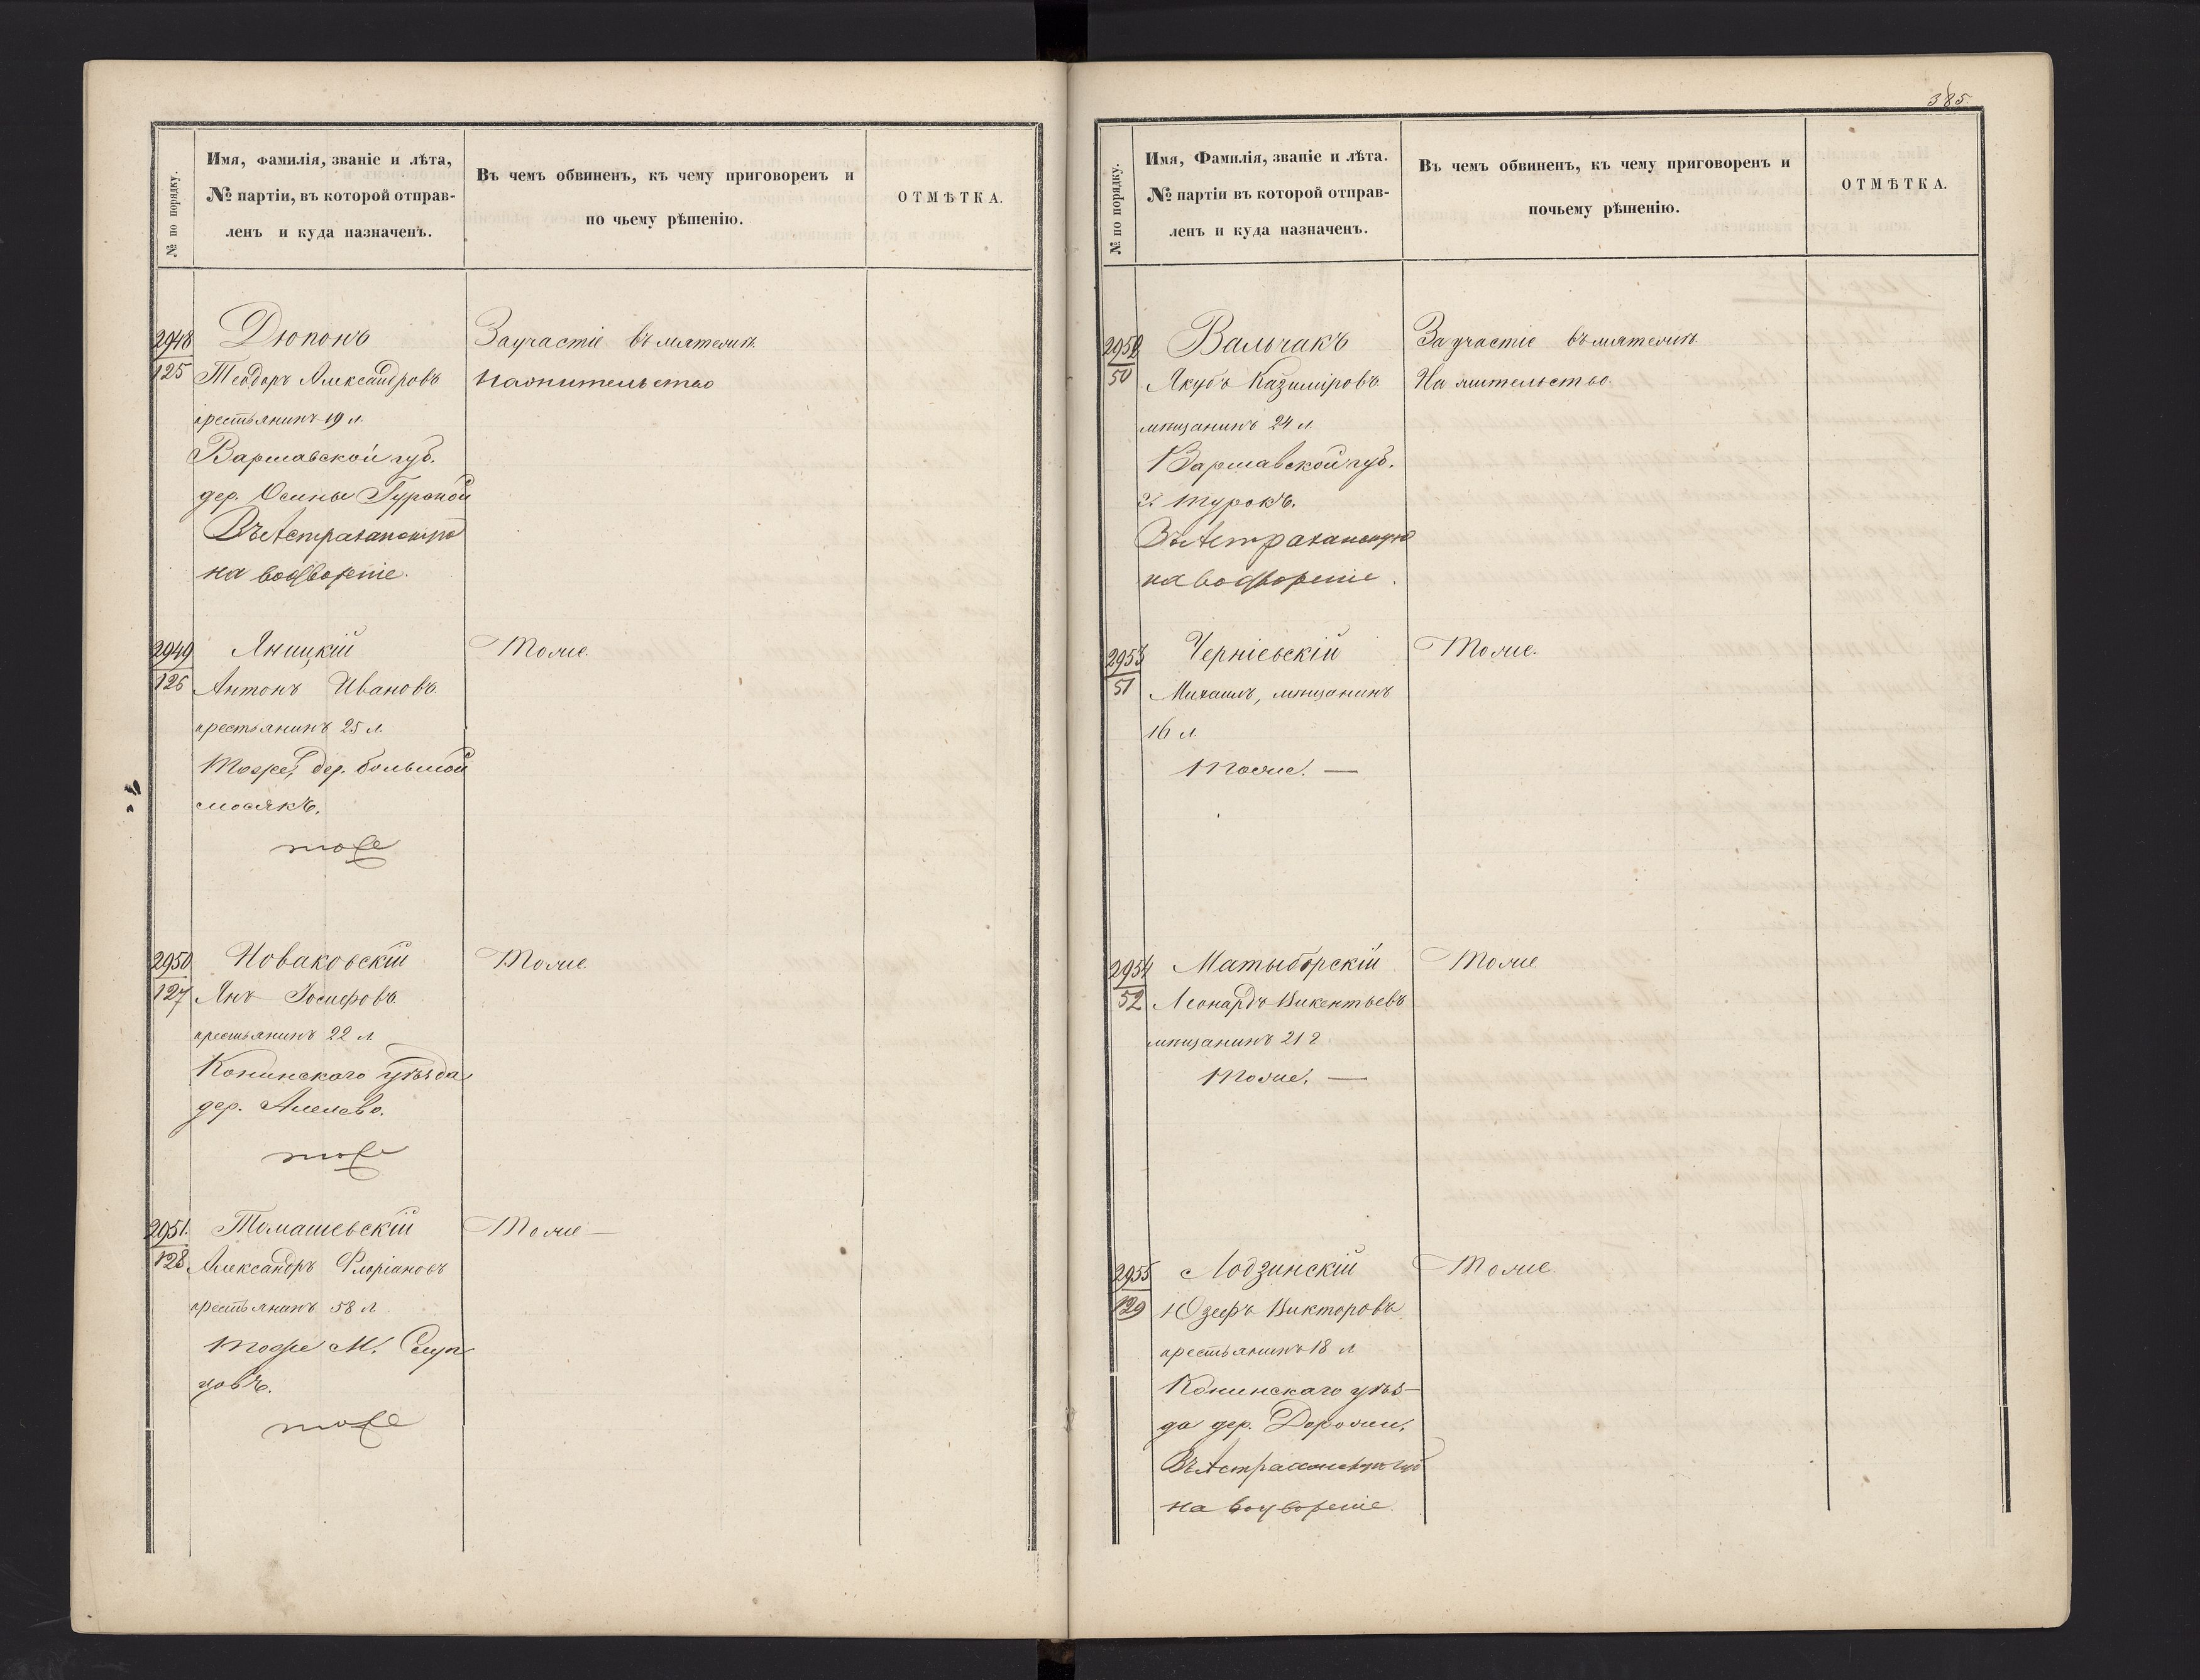 № по порядку.
Имя, Фамилія, званіе и лѣта,
№ партіи, въ которой отправ-
ленъ и куда назначенъ.
Въ чемъ обвиненъ, къ чему приговоренъ и
по чьему рѣшенію.
ОТМѢТКА.
2948
125
Дюпонъ
Теодоръ Александровъ
крестьянинъ 19 л.
Варшавской губ.
дер. Осины Гурской
Въ Астраханскую
на водвореніе.
За участіе въ мятежѣ.
На жительство
2949
126
Яницкій
Антонъ Ивановъ
крестьянинъ 25 л.
Тоже, дер. большой
тоже
Тоже.
2950
127
Новаковскій
Янъ Іосифовъ
крестьянинъ 22 л.
Конинскаго уѣзда
дер.
тоже
Тоже.
2951.
128
Томашевскій
Александръ Флоріановъ
крестьянинъ 58 л.
Тоже М. Слуп
цовъ.
тоже
Тоже —
385.
№ по порядку.
Имя, Фамилія, званіе и лѣта.
№ партіи въ которой отправ-
ленъ и куда назначенъ.
Въ чемъ обвиненъ, къ чему приговоренъ и
почьему рѣшенію.
ОТМѢТКА.
2952
50
Вальчакъ
Якубъ Казиміровъ
мѣщанинъ 24 л.
Варшавской губ.
г. Турокъ.
Въ Астраханскую
на водвореніе.
За участіе въ мятежѣ.
На жительство.
2953
51
Черніевскій
Михаилъ, мѣщанинъ
16 л.
Тоже. —
Тоже.
2954
52
Матыборскій
Леонардъ Викентьевъ
мѣщанинъ 21 г.
Тоже. —
Тоже.
2955
129
Лодзинскій
Юзефъ Викторовъ
крестьянинъ 18 л.
Конинскаго уѣз-
да дер.
Въ Астраханскую губ
на водвореніе.
Тоже.